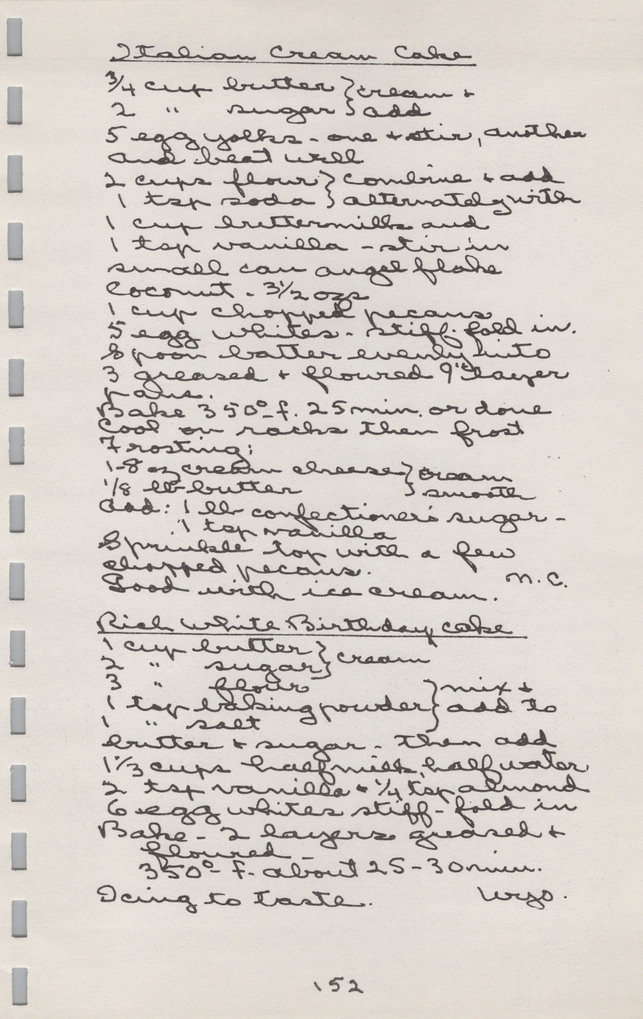 Italian Cream Cake
3/4 cup butter } cream +
2 " sugar } add
5 egg yolks - one + stir, another
and beat well
2 cups flour } combine + add
1 tsp soda } alternately with
1 cup buttermilk and
1 tsp vanilla - stir in
small can angel flake
coconut - 3 1/2 ozs
1 cup chopped pecans
5 egg whites - stiff - fold in.
Spoon batter evenly into
3 greased + floured 9" layer
pans.
Bake 350° f. 25 min. or done
Cool on racks then frost
Frosting:
1-8 oz cream cheese } cream
1/8 lb butter } smooth
Add: 1 lb confectioner's sugar -
1 tsp vanilla
Sprinkle top with a few
chopped pecans.
Good with ice cream. N.C.
Rich White Birthday Cake
1 cup butter } cream
2 " sugar }
3 " flour } mix +
1 tsp baking powder } add to
1 " salt
butter + sugar - then add
1 1/3 cups half milk, half water
2 tsp vanilla + 1/4 tsp almond
6 egg whites stiff - fold in
Bake - 2 layers greased +
floured -
350° - f. about 25-30 min.
Icing to taste. Wyo.
152